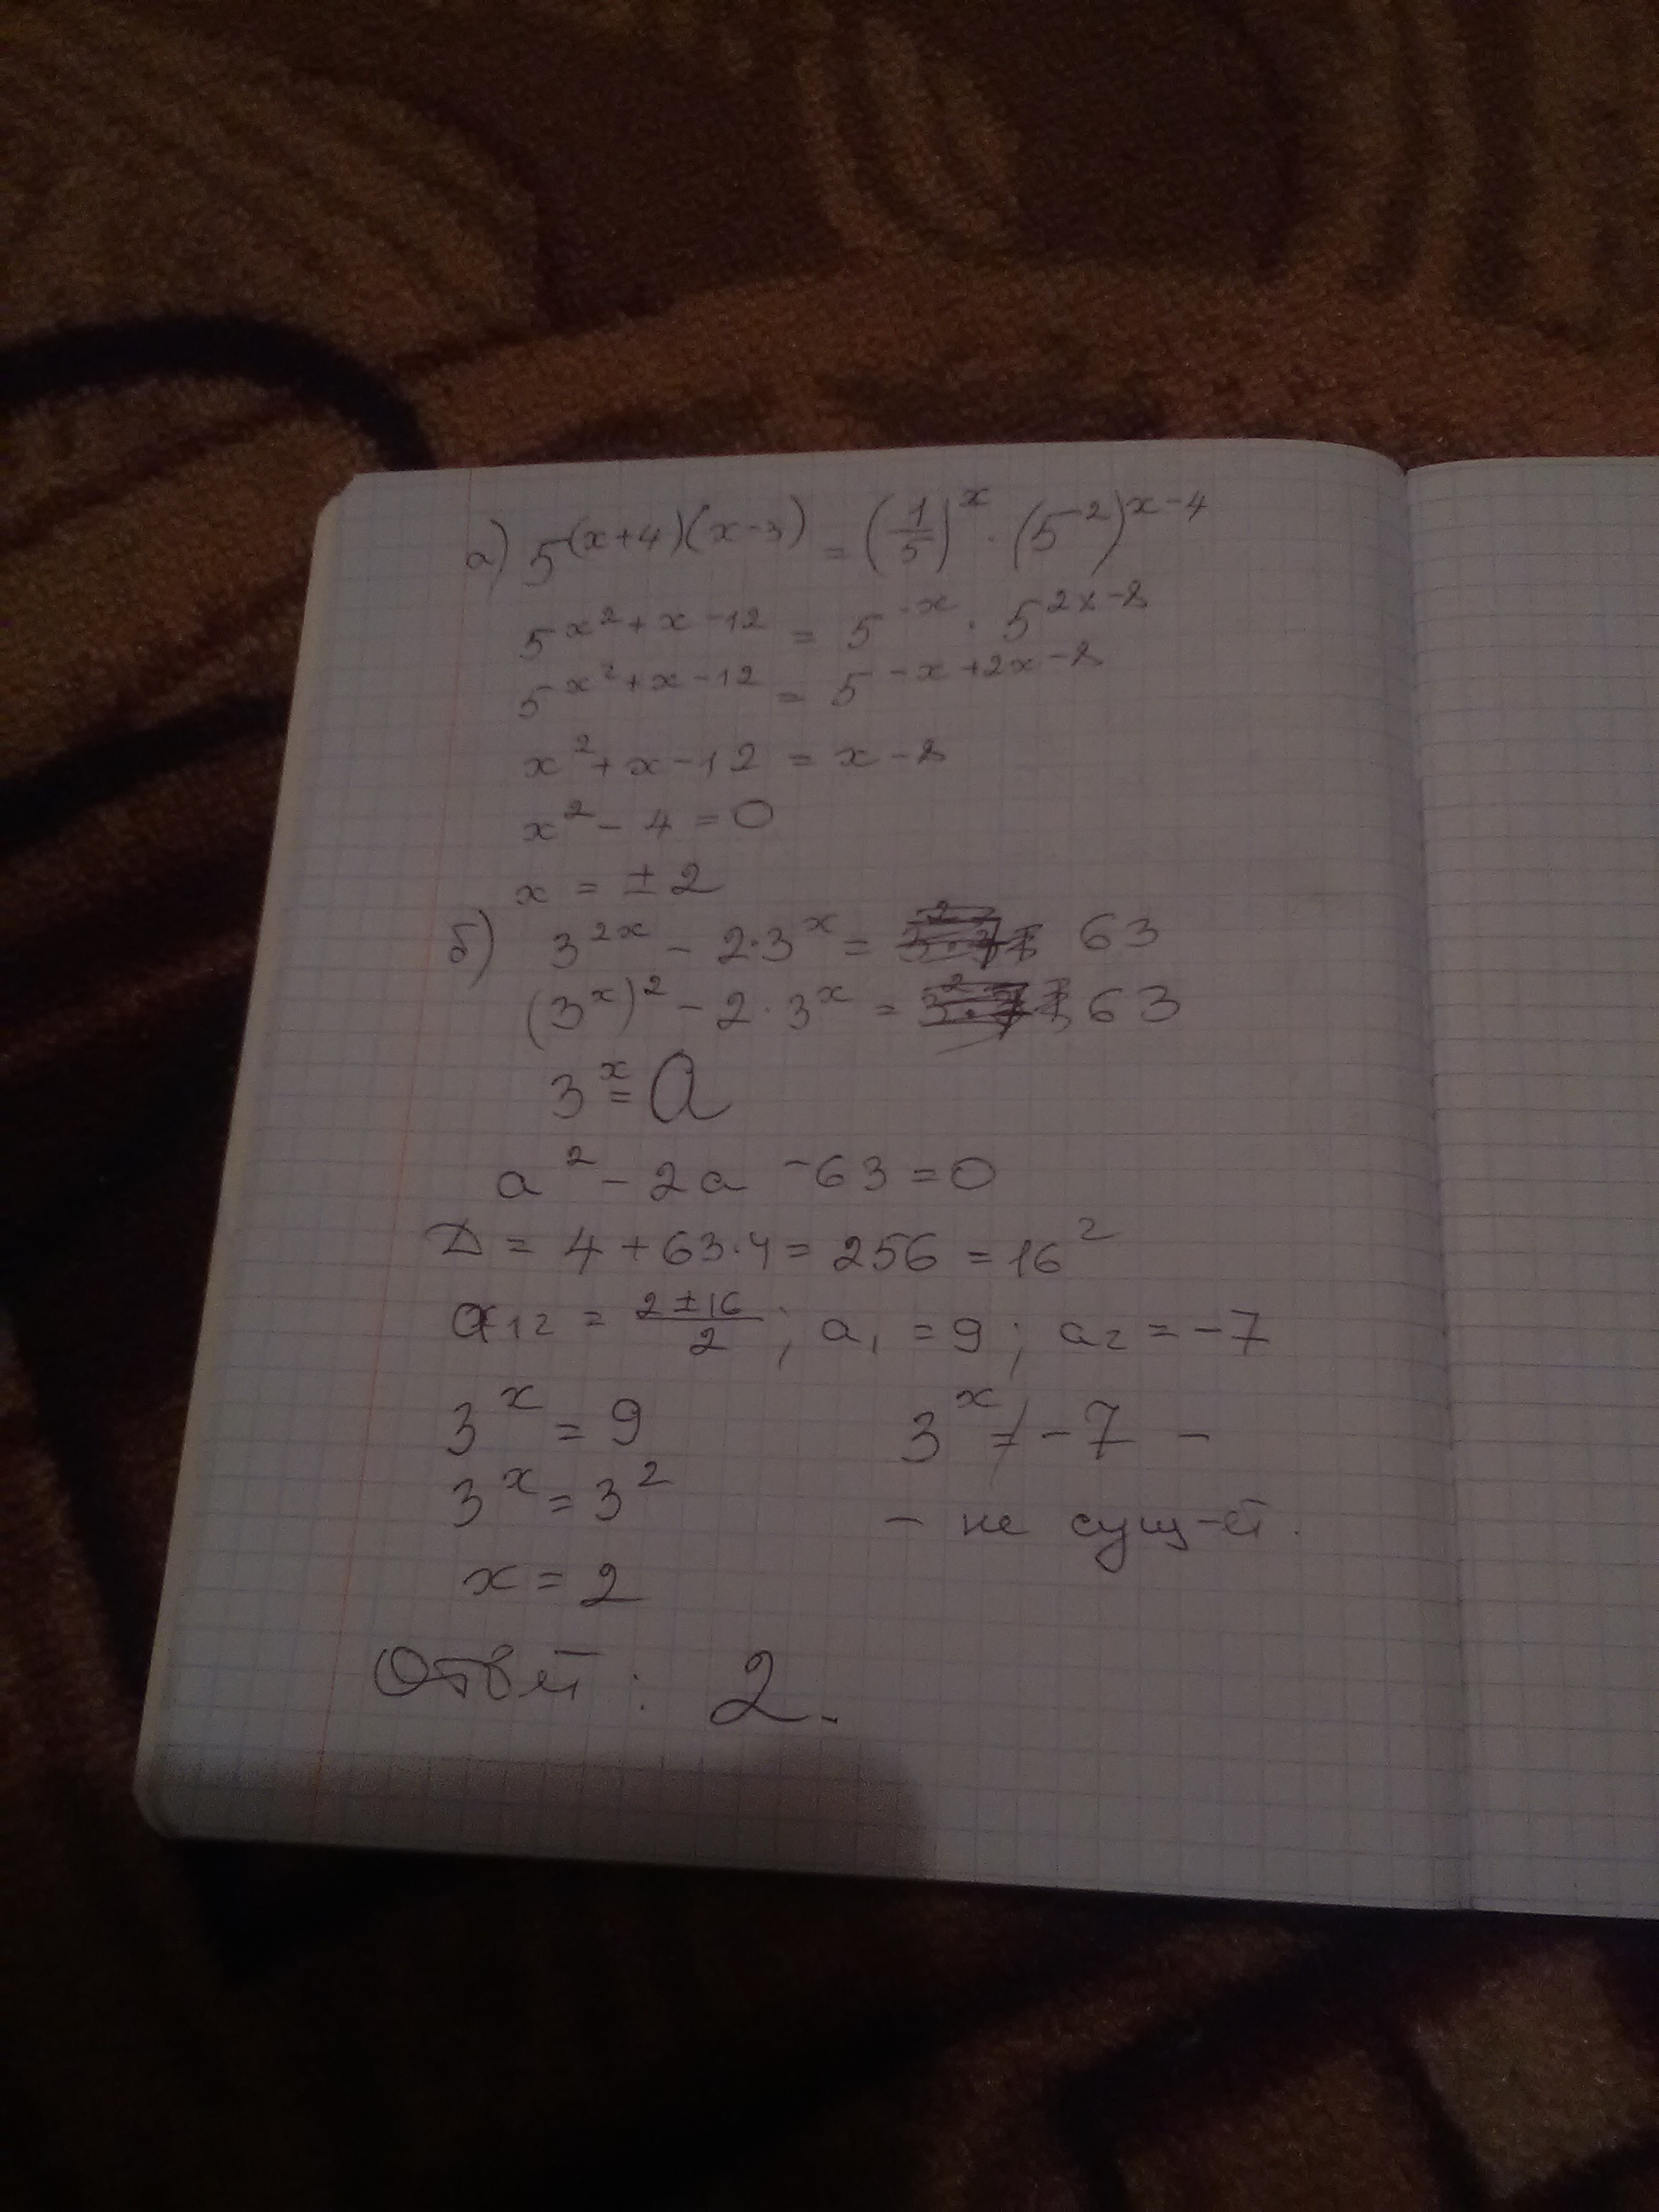 а) 5^(x+4)(x-3) = (1/5)^x · (5^-2)^x-4
5^x²+x-12 = 5^-x · 5^2x-8
5^x²+x-12 = 5^-x+2x-8
x²+x-12 = x-8
x²-4=0
x = ±2
б) 3^2x - 2·3^x = 63
(3^x)² - 2·3^x = 63
3^x = a
a² - 2a - 63 = 0
D = 4+63·4 = 256 = 16²
a₁₂ = (2±16)/2 ; a₁ = 9 ; a₂ = -7
3^x = 9 3^x ≠ -7 -
3^x = 3² - не сущ-ет.
x = 2
Ответ : 2.